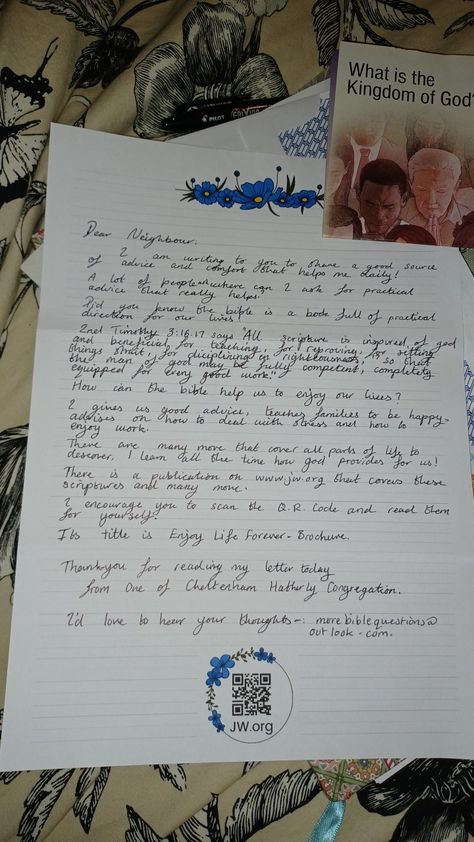 What is the
Kingdom of God?
PILOT
Dear Neighbour,
I am writing to you to share a good source
of advice and comfort that helps me daily!
A lot of people where can I ask for practical
advice that really helps.
Did you know the bible is a book full of practical
direction for our lives!
2nd Timothy 3:16.17 says "All scripture is inspired of god
and beneficial for teaching, for reproving, for setting
things strait, for diciplining in righteousness, so that
the man of god may be fully competent, completely
equipped for every good work."
How can the bible help us to enjoy our lives?
I gives us good advice, teaches families to be happy-
advises on how to deal with stress and how to
enjoy work.
There are many more that cover all parts of life to
discover. I learn all the time how god provides for us!
There is a publication on www.jw.org that covers these
scriptures and many more.
I encourage you to scan the Q.R. Code and read them
for yourself.
It's title is Enjoy Life Forever - Brochure.
Thankyou for reading my letter today
from One of Cheltenham Hatherly Congregation.
I'd love to hear your thoughts -: morebiblequestions@
outlook.com.
JW.org